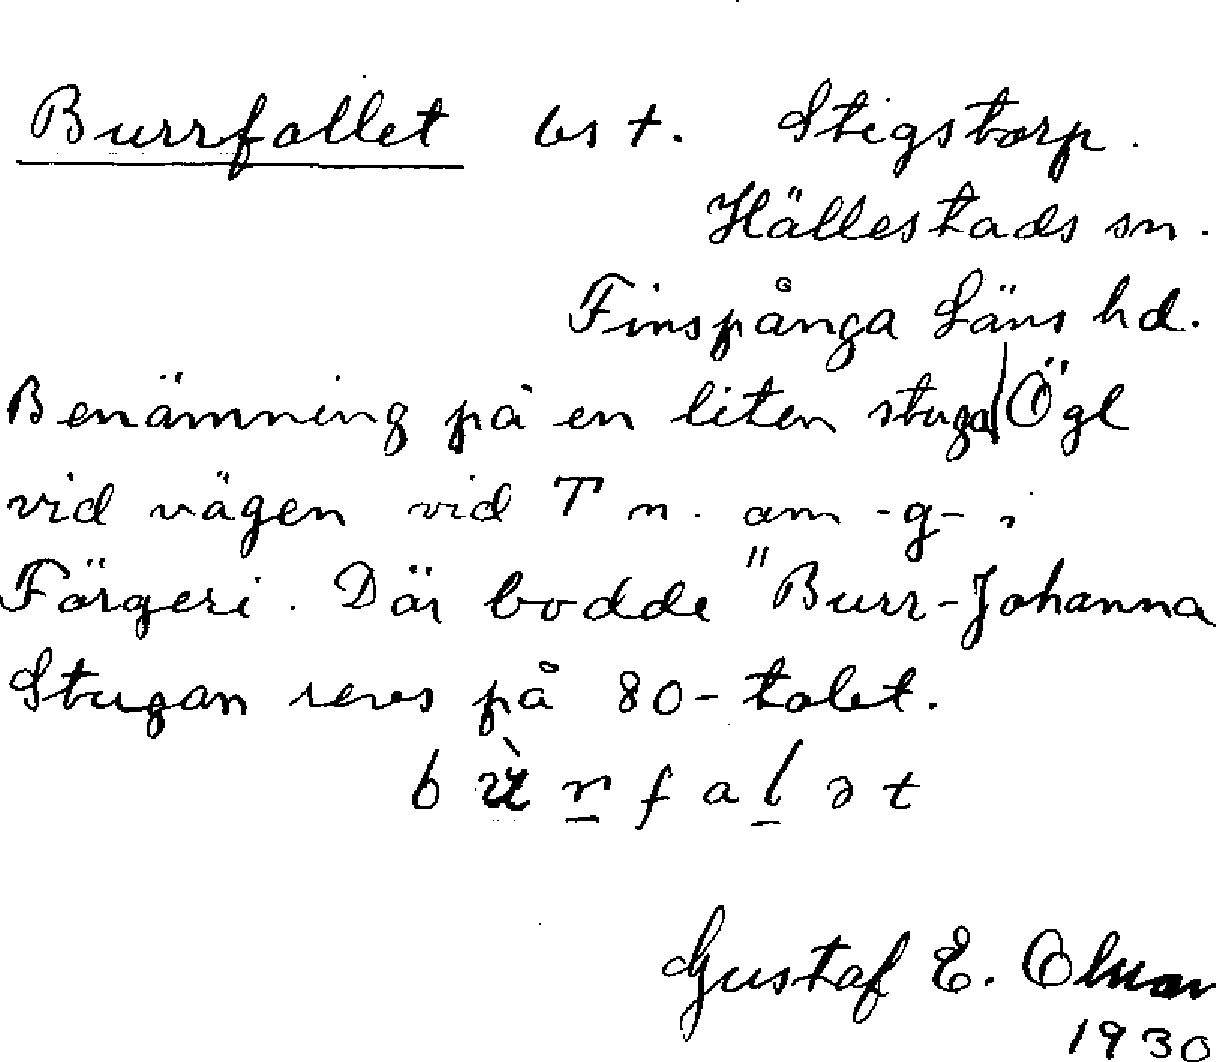 Burrfallet bst. Stigstorp.
Hällestads sn.
Finspånga Läns hd.
Benämning på en liten stuga Ögl
vid vägen vid
Färgeri. Där bodde "Burr-Johanna
Stugan revs på 80-talet.
Gustaf E. Olsson
1930